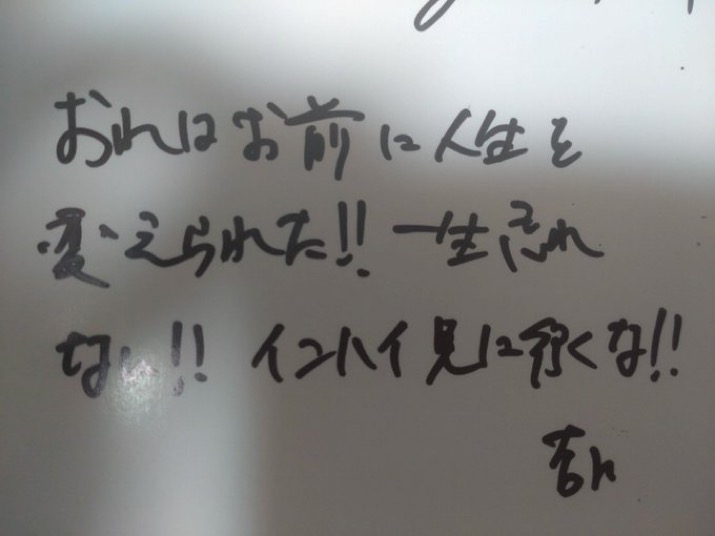 おれはお前に人生を
変えられた!! 一生忘れ
ない!! インハイ見に行くな!!